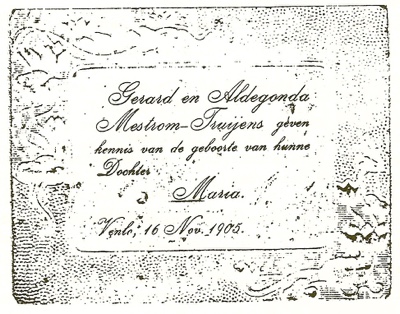 Gerard en Aldegonda
Mestrom-Truijens geven
kennis van de geboorte van hunne
Dochter
Maria.
Venlo, 16 Nov. 1905.